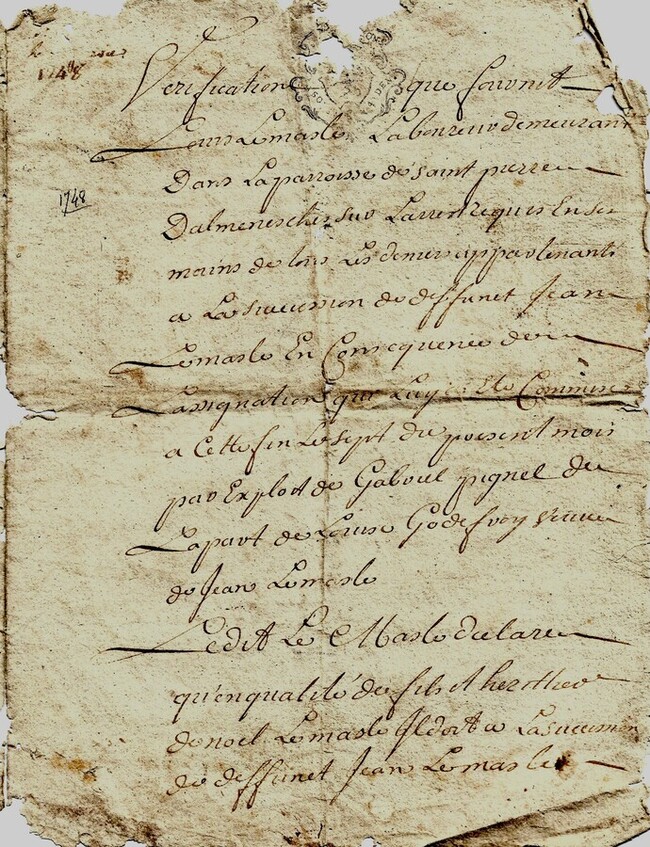 1748
Verification que fournit
Louis Lemasle Laboureur demeurant
Dans La parroisse de saint pierre
1748
Sur Larrest requis En ses
mains de tous Les deniers appartenants
a La succession de deffunct Jean
Lemasle En Consequence de
Lassignation qui Luy Este Commise
a Cette fin Le sept du present mois
par Exploit de Gabriel pignel de
La part de Louise Godefroy veuve
de Jean Lemasle
Ledit Le Masle declare
qu'en qualité de fils et heritier
de noel Lemasle Il doit a La succession
de deffunct Jean Lemasle